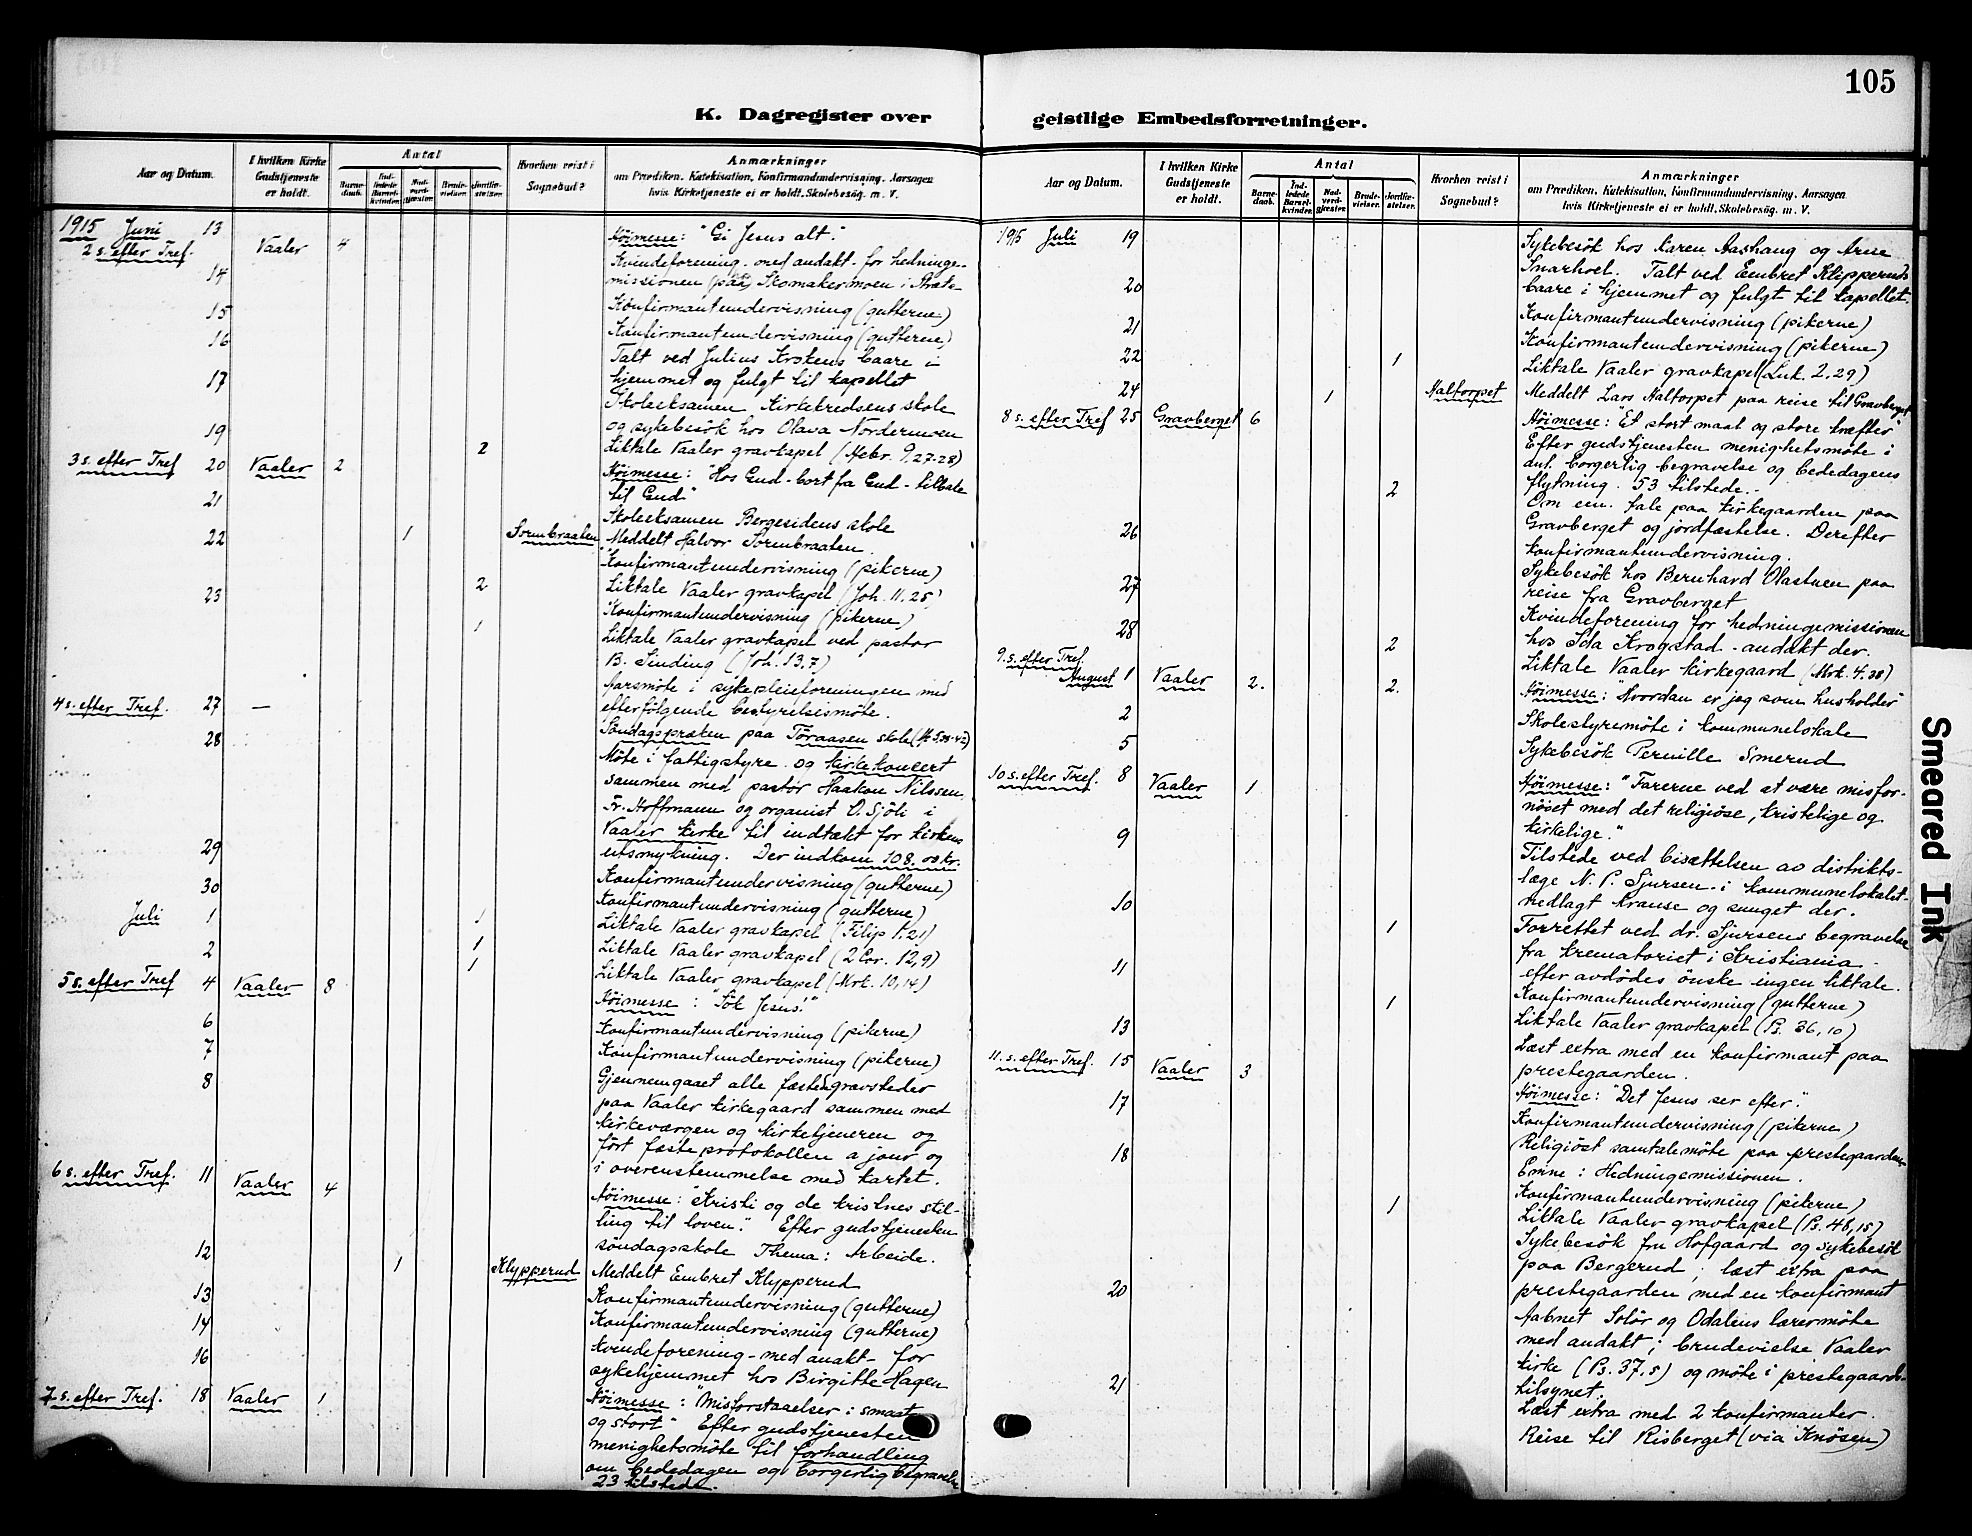 105
K. Dagregister over
geistlige Embedsforretninger.
Aar og Datum.
I hvilken Kirke Gudstjeneste er holdt.
Antal
Barnedaab.
Indledede Barselkvinder.
Nadverdgjæster.
Brudevielser.
Jordfæstelser.
Hvorhen reist i Sognebud?
Anmærkninger
om Prædiken, Katekisation, Konfirmandundervisning, Aarsagen
hvis Kirketjeneste ei er holdt, Skolebesøg, m. V.
1915 Juni 13
2 s. efter Tref. Vaaler 4
Höimesse: "Gi Jesus alt."
14 Kvindeforening med andakt for hedninge-
missionen paa Skomakermoen i
15 Konfirmantundervisning (gutterne)
16 Konfirmantundervisning (gutterne)
17 Talt ved Julius Krokens baare i
hjemmet og fulgt til kapellet
Skoleeksamen Kirkekredsens skole
og sykebesök hos Olava Nordermoen
19 2 Liktale Vaaler gravkapel (Hebr. 9,27-28)
3 s. efter Tref 20 Vaaler 2 Höimesse: "Hos Gud - bort fra Gud - tilbake
til Gud"
21 Skoleeksamen Bergesidens skole
22 1 Sormbraaten Meddelt Halvor Sormbraaten.
Konfirmantundervisning (pikerne)
23 2 Liktale Vaaler gravkapel (Joh. 11.25)
Konfirmantundervisning (pikerne)
1 Liktale Vaaler gravkapel ved pastor
B. Sinding (Joh. 13.7)
Aarsmöte i sykepleieforeningen med
efterfölgende bestyrelsesmöte.
4 s. efter Tref. 27 —
Söndagspræken paa Töraasen skole
28 Möte i fattigstyre og kirkekonsert
sammen med pastor Haakon Nilssen
Fr. Hoffmann og organist O. Sjöli i
Vaaler kirke til indtækt for kirkens
utsmykning. Der indkom 108.00 kr.
29 Konfirmantundervisning (gutterne)
30 Konfirmantundervisning (gutterne)
Juli 1 1 Liktale Vaaler gravkapel (Filip 1.21)
2 1 Liktale Vaaler gravkapel (2 Cor. 12,9)
1 Liktale Vaaler gravkapel (Mrk. 10,14)
5 s. efter Tref 4 Vaaler 8 Höimesse: "Sök Jesus!"
6 Konfirmantundervisning (pikerne)
7 Konfirmantundervisning (pikerne)
8 Gjennemgaaet alle fæstegravsteder
paa Vaaler kirkegaard sammen med
kirkeværgen og kirketjeneren og
fört fæsteprotokollen a jour og
i overenstemmelse med kartet.
6 s. efter Tref. 11 Vaaler 4 Höimesse: "Kristi og de kristnes stil-
ling til loven." Efter gudstjenesten
söndagsskole Thema: Arbeide.
12 1 Klypperud Meddelt Embret Klypperud
13 Konfirmantundervisning (gutterne)
14 Konfirmantundervisning (gutterne)
16 Kvindeforening - med anakt - for
sykehjemmet hos Birgitte Hagen
7 s. efter Tref. 18 Vaaler 1 Höimesse: "Misforstaaelser i smaat
og stort" Efter gudstjenesten
menighetsmöte til forhandling
om bededagen og borgerlig begravelse
23 tilstede.
Aar og Datum.
I hvilken Kirke Gudstjeneste er holdt.
Antal
Barnedaab.
Indledede Barselkvinder.
Nadverdgjæster.
Brudevielser.
Jordfæstelser.
Hvorhen reist i Sognebud?
Anmærkninger
om Prædiken, Katekisation, Konfirmandundervisning, Aarsagen
hvis Kirketjeneste ei er holdt, Skolebesøg, m. V.
1915 Juli 19 Sykebesök hos Karen Aashaug og Arne
Snarhoel. Talt ved Embret Klipperuds
baare i hjemmet og fulgt til kapellet.
20 Konfirmantundervisning (pikerne)
21 Konfirmantundervisning (pikerne)
22 1 Liktale Vaaler gravkapel (Luk. 2,29)
24 1 Halforpet Meddelt Lars Halforpet paa reise til Gravberget
8 s. efter Tref 25 Gravberget 6 Höimesse: "Et stort maal og store kræfter"
Efter gudstjenesten menighetsmöte i
anl. borgerlig begravelse og bededagens
flytning. 53 tilstede.
2 Om em. tale paa kirkegaarden paa
Gravberget og jordfæstelse. Derefter
konfirmantundervisning.
26 Sykebesök hos Bernhard Olastuen paa
reise fra Gravberget
27 Kvindeforening for hedningemissionen
hos Ida Krogstad - andakt der.
28 2 Liktale Vaaler kirkegaard (Mrk. 4.38)
9. s. efter Tref.
August 1 Vaaler 2. 2. Höimesse: "Hvordan er jeg som husholder"
2 Skolestyremöte i kommunelokale
5 Sykebesök Pernille Smerud
10 s. efter Tref. 8 Vaaler 1 Höimesse: "Farerne ved at være misfor-
nöiet med det religiöse, kristelige og
kirkelige."
9 Tilstede ved bisættelsen av distrikts-
læge N. P. Sjursen i kommunelokalet
nedlagt kranse og sunget der.
10 1 Forrettet ved dr. Sjursens begravelse
fra krematoriet i Kristiania
efter avdödes önske ingen liktale.
11 Konfirmantundervisning (gutterne)
1 Liktale Vaaler gravkapel (Ps. 36,10)
13 Læst extra med en konfirmant paa
prestegaarden.
11. s. efter Tref. 15 Vaaler 3 Höimesse: "Det Jesus ser efter."
17 Konfirmantundervisning (pikerne)
Religiöst samtalemöte paa prestegaarden
Emne: Hedningemissionen.
18 Konfirmantundervisning (pikerne)
1 Liktale Vaaler gravkapel (Ps. 48,15)
Sykebesök fru Hofgaard og sykebesök
paa Bergerud; læst extra paa
prestegaarden med en konfirmant
20 Aabnet Solör og Odalens lærermöte
med andakt; brudevielse Vaaler
kirke (Ps. 37.5) og möte i prestegaards-
tilsynet.
21 Læst extra med 2 konfirmanter.
Reise til Risberget (via Knösen)
Smeared Ink